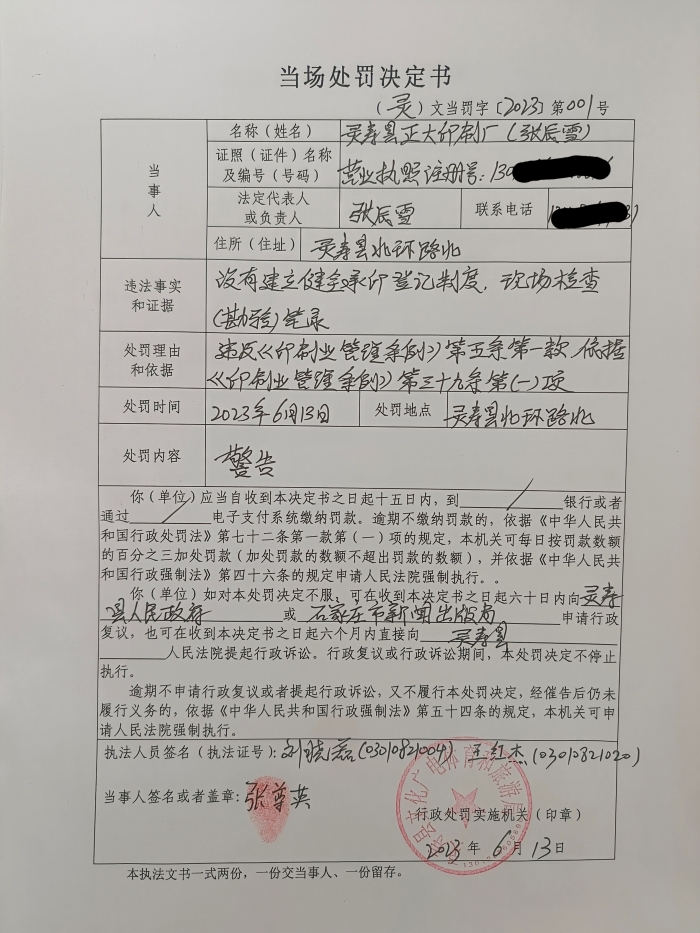 当场处罚决定书
（灵）文当罚字〔2023〕第001号
当事人
名称（姓名） 灵寿县正大印刷厂（张辰雪）
证照（证件）名称及编号（号码） 营业执照注册号：130
法定代表人或负责人 张辰雪 联系电话
住所（住址） 灵寿县北环路北
违法事实和证据 没有建立健全承印登记制度，现场检查
（勘验）笔录
处罚理由和依据 违反《印刷业管理条例》第五条第一款，依据
《印刷业管理条例》第三十九条第（一）项
处罚时间 2023年6月13日 处罚地点 灵寿县北环路北
处罚内容 警告
你（单位）应当自收到本决定书之日起十五日内，到 / 银行或者
通过 / 电子支付系统缴纳罚款。逾期不缴纳罚款的，依据《中华人民共
和国行政处罚法》第七十二条第一款第（一）项的规定，本机关可每日按罚款数额
的百分之三加处罚款（加处罚款的数额不超出罚款的数额），并依据《中华人民共
和国行政强制法》第四十六条的规定申请人民法院强制执行。。
你（单位）如对本处罚决定不服，可在收到本决定书之日起六十日内向灵寿
县人民政府 或 石家庄市新闻出版局 申请行政
复议，也可在收到本决定书之日起六个月内直接向 灵寿县
人民法院提起行政诉讼。行政复议或行政诉讼期间，本处罚决定不停止
执行。
逾期不申请行政复议或者提起行政诉讼，又不履行本处罚决定，经催告后仍未
履行义务的，依据《中华人民共和国行政强制法》第五十四条的规定，本机关可申
请人民法院强制执行。
执法人员签名（执法证号）：刘晓磊（03010821004） 王红杰（03010821020）
当事人签名或者盖章：张尊英
灵寿县文化广电体育和旅游局
行政处罚实施机关（印章）
2023年6月13日
本执法文书一式两份，一份交当事人、一份留存。